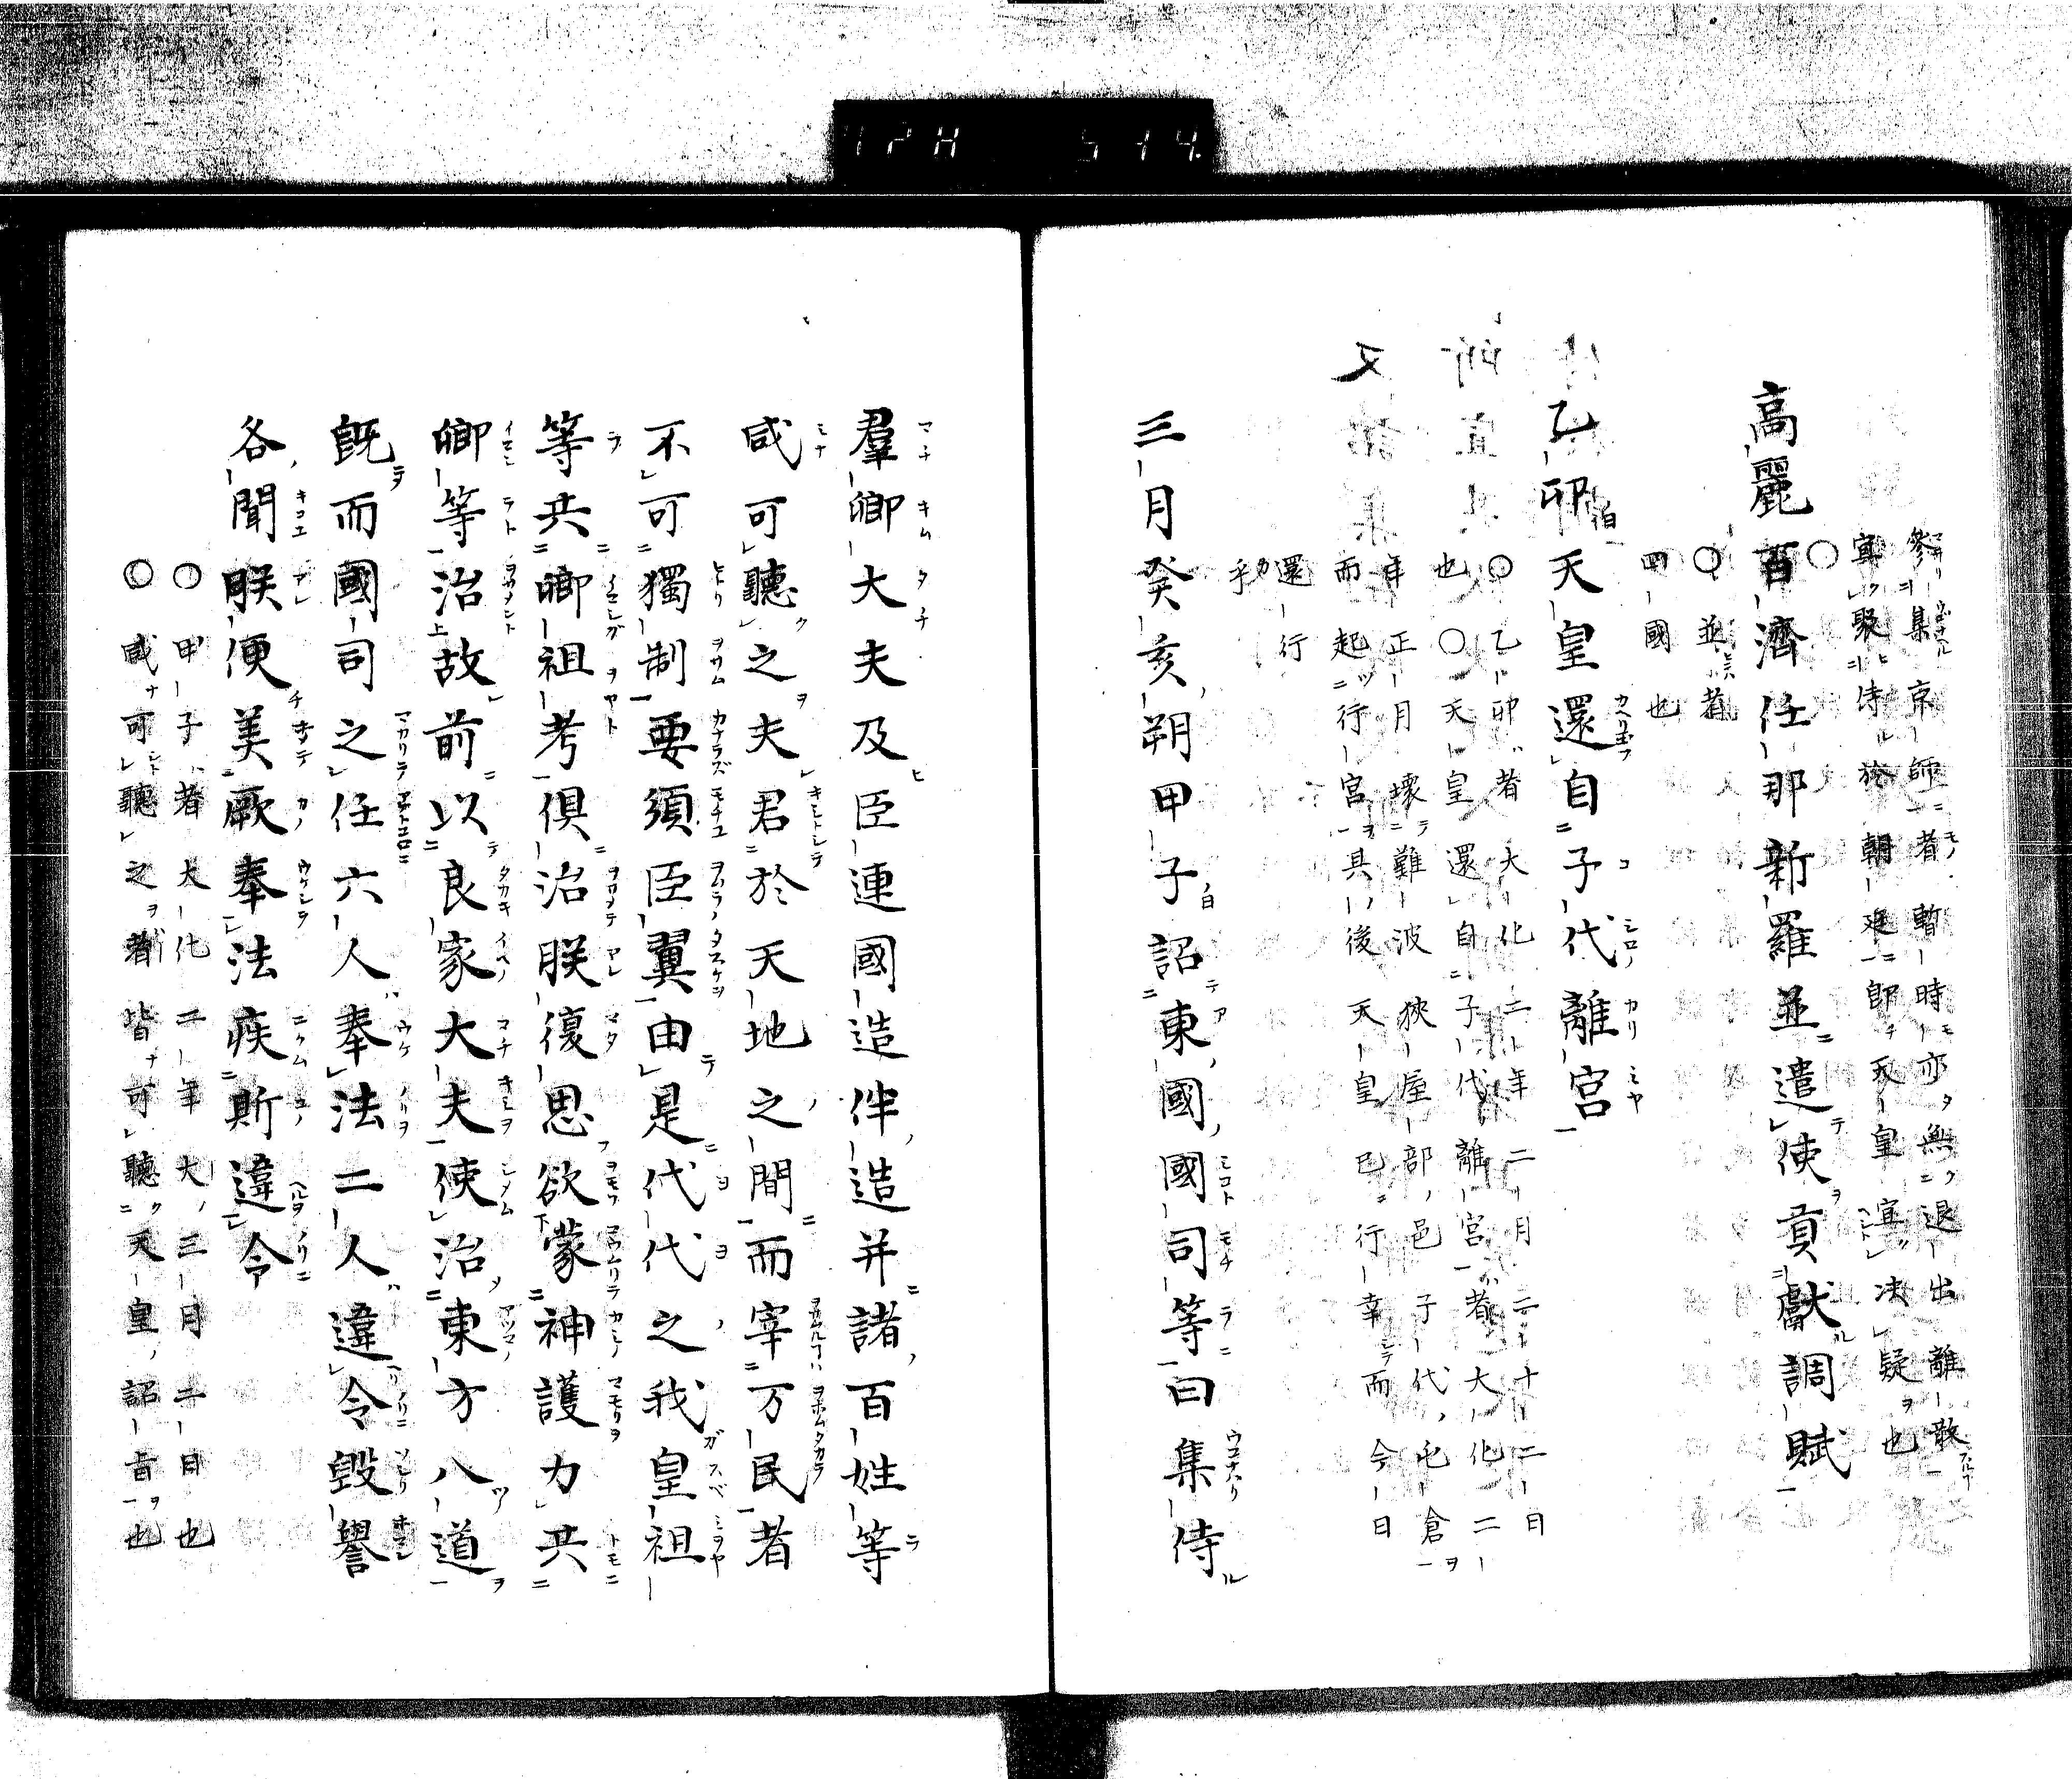 參集京師者暫時亦無退出離散
宜聚侍於朝廷即天皇宜決疑也
高麗百濟任那新羅並遣使貢獻調賦
○並者
四國也
乙卯天皇還自子代離宮
○乙卯者大化二年二月二十二日
也○天皇還自子代離宮者大化二
年正月壞難波狹屋部邑子代屯倉
而起行宮其後天皇已行幸而今日
還行
乎
三月癸亥朔甲子詔東國國司等曰集侍
羣卿大夫及臣連國造伴造并諸百姓等
咸可聽之夫君於天地之間而宰万民者
不可獨制要須臣翼由是代代之我皇祖
等共卿祖考俱治朕復思欲蒙神護力共
卿等治故前以良家大夫使治東方八道
既而國司之任六人奉法二人違令毀譽
各聞朕便美厥奉法疾斯違令
○甲子者大化二年大三月二日也
○咸可聽之者皆可聽天皇詔旨也